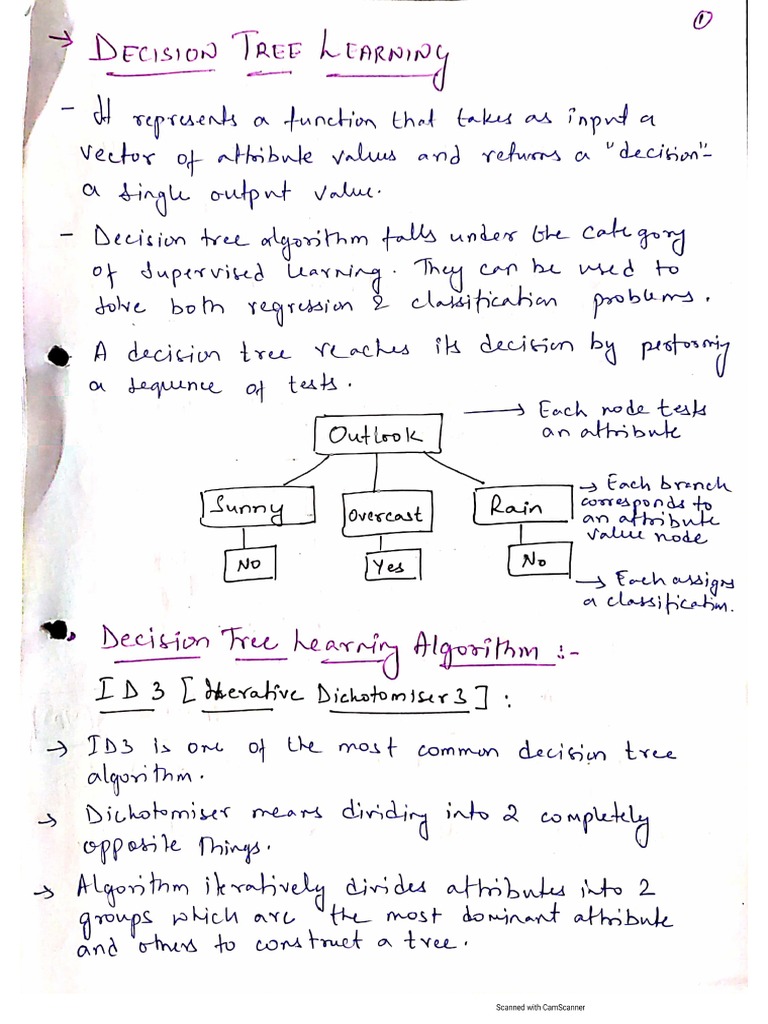 ①
→ DECISION TREE LEARNING
- It represents a function that takes as input a
vector of attribute values and returns a "decision"-
a single output value.
- Decision tree algorithm falls under the category
of supervised learning. They can be used to
solve both regression & classification problems.
• A decision tree reaches its decision by performing
a sequence of tests.
Outlook
→ Each node tests
an attribute
Sunny
Overcast
Rain
→ Each branch
corresponds to
an attribute
value node
No
Yes
No
→ Each assigns
a classification.
• Decision Tree Learning Algorithm :-
ID3 [Iterative Dichotomiser3] :
→ ID3 is one of the most common decision tree
algorithm.
→ Dichotomiser means dividing into 2 completely
opposite things.
→ Algorithm iteratively divides attributes into 2
groups which are the most dominant attribute
and others to construct a tree.
Scanned with CamScanner